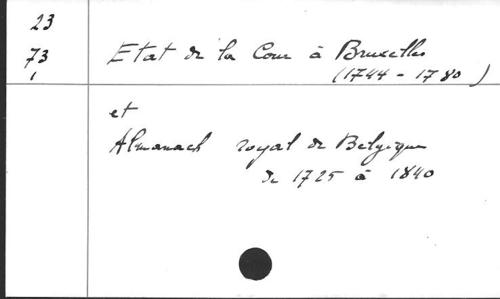 23
73
1
Etat de la Cour à Bruxelles
(1744 - 1780)
et
Almanach royal de Belgique
de 1725 à 1840